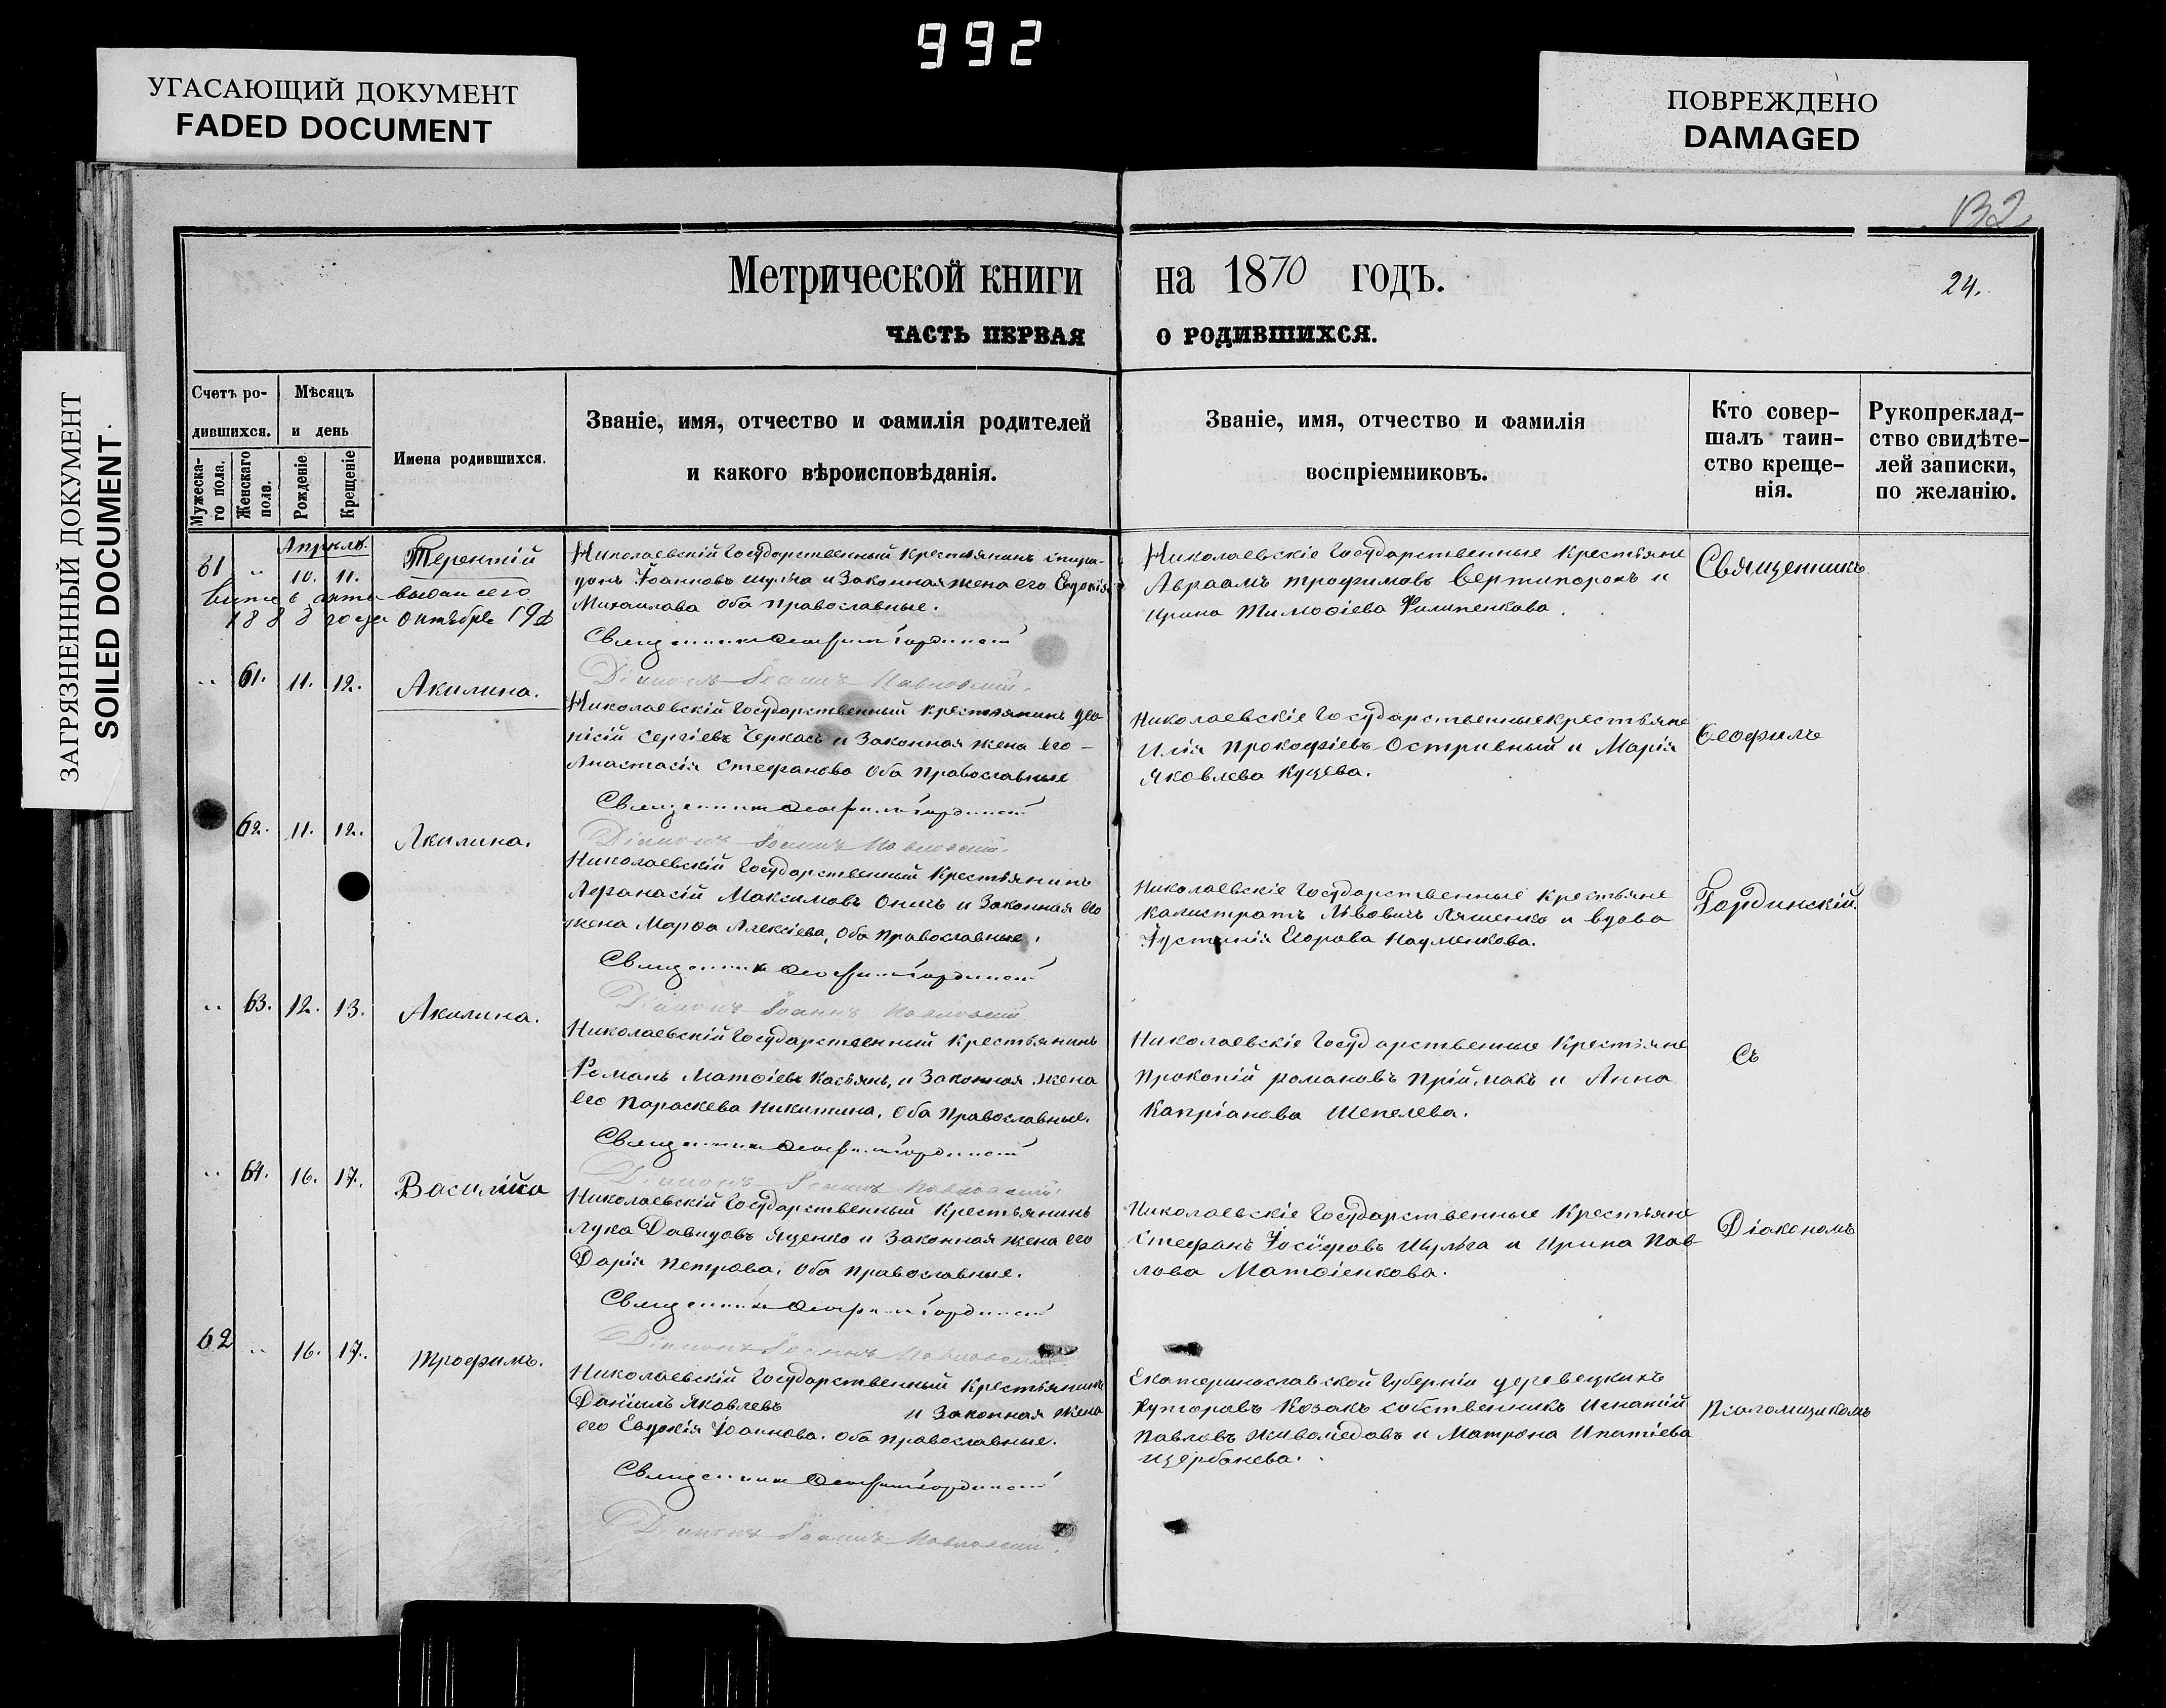 992
УГАСАЮЩИЙ ДОКУМЕНТ
FADED DOCUMENT
ПОВРЕЖДЕНО
DAMAGED
ЗАГРЯЗНЕННЫЙ ДОКУМЕНТ
SOILED DOCUMENT
132
Метрической книги на 1870 годъ.
24.
ЧАСТЬ ПЕРВАЯ О РОДИВШИХСЯ.
Счетъ ро-
дившихся.
Мужеска-
го пола.
Женскаго
пола.
Мѣсяцъ
и день
Рожденіе
Крещеніе
Имена родившихся.
Званіе, имя, отчество и фамилія родителей
и какого вѣроисповѣданія.
Званіе, имя, отчество и фамилія
воспріемниковъ.
Кто совер-
шалъ таин-
ство креще-
нія.
Рукопреклад-
ство свидѣте-
лей записки,
по желанію.
Апрѣль.
61 " 10. 11. Терентій
выданъ его
1888 года Октября 19д
Николаевскій Государственный Крестьянинъ Спири-
донъ Іоанновъ Шульга и Законная жена его Евдокія
Михаилова Оба Православные.
Священникъ Ѳеофилъ Гординскій
Діаконъ Іоаннъ Павловскій.
Николаевскіе Государственные Крестьяне
Авраамъ Трофимовъ Вертипорохъ и
Ирина Тимоѳіева Филипенкова.
Священникъ
" 61. 11. 12. Акилина.
Николаевскій Государственный Крестьянинъ Діо-
нісій Сергіевъ Черкасъ и Законная жена его
Анастасія Стефанова Оба Православные
Священникъ Ѳеофилъ Гординскій
Діаконъ Іоаннъ Павловскій.
Николаевскіе Государственные крестьяне
Илія Прокофіевъ Остривный и Марія
Яковлева Куцева.
Ѳеофилъ
62. 11. 12. Акилина.
Николаевскій Государственный Крестьянинъ
Афанасій Максимовъ Онись и Законная его
жена Марѳа Алексіева, Оба Православные.
Священникъ Ѳеофилъ Гординскій
Діаконъ Іоаннъ Павловскій
Николаевскіе Государственные Крестьяне
Калистратъ Львовичъ Ляшенко и вдова
Іустинія Егорова Науменкова.
Гординскій.
" 63. 12. 13. Акилина.
Николаевскій Государственный Крестьянинъ
Романъ Матѳіевъ Касьянъ, и Законная жена
его Параскева Никитина, Оба Православные.
Священникъ Ѳеофилъ Гординскій
Діаконъ Іоаннъ Павловскій.
Николаевскіе Государственные Крестьяне
Прокопій Романовъ Пріймакъ и Анна
Капріанова Шепелева.
Съ
" 64. 16. 17. Василіса
Николаевскій Государственный Крестьянинъ
Лука Давидовъ Яценко и Законная жена его
Дарія Петрова. Оба Православные.
Священникъ Ѳеофилъ Гординскій
Діаконъ Іоаннъ Павловскій
Николаевскіе Государственные Крестьяне
Стефанъ Іосифовъ Шульга и Ирина Пав-
лова Матѳіенкова.
Діакономъ
62 " 16. 17. Трофимъ.
Николаевскій Государственный Крестьянинъ
Даніилъ Яковлевъ и Законная жена
его Евдокія Іоаннова. Оба Православные.
Священникъ Ѳеофилъ Гординскій
Діаконъ Іоаннъ Павловскій.
Екатеринославской Губерніи
Хуторовъ Козакъ собственникъ Игнатій
Павловъ Живомѣдовъ и Матрона Ипатіева
Щербанева.
Псаломщикомъ